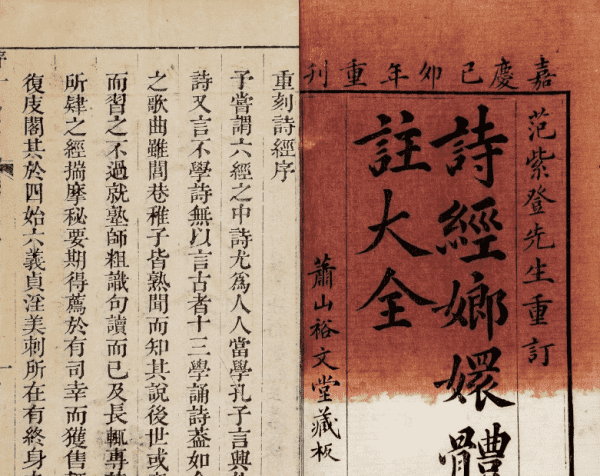 嘉慶己卯年重刊
范紫登先生重訂
詩經嫏嬛體
註大全
蕭山裕文堂藏板
重刻詩經序
予嘗謂六經之中詩尤爲人人當學孔子言興
詩又言不學詩無以言古者十三學誦詩蓋如
之歌曲雖閭巷稚子皆熟聞而知其說後世或
而習之不過就塾師粗識句讀而已及長輒專
所肄之經揣摩秘要期得薦於有司幸而獲售
復庋閣其於四始六義貞淫美刺所在有終身